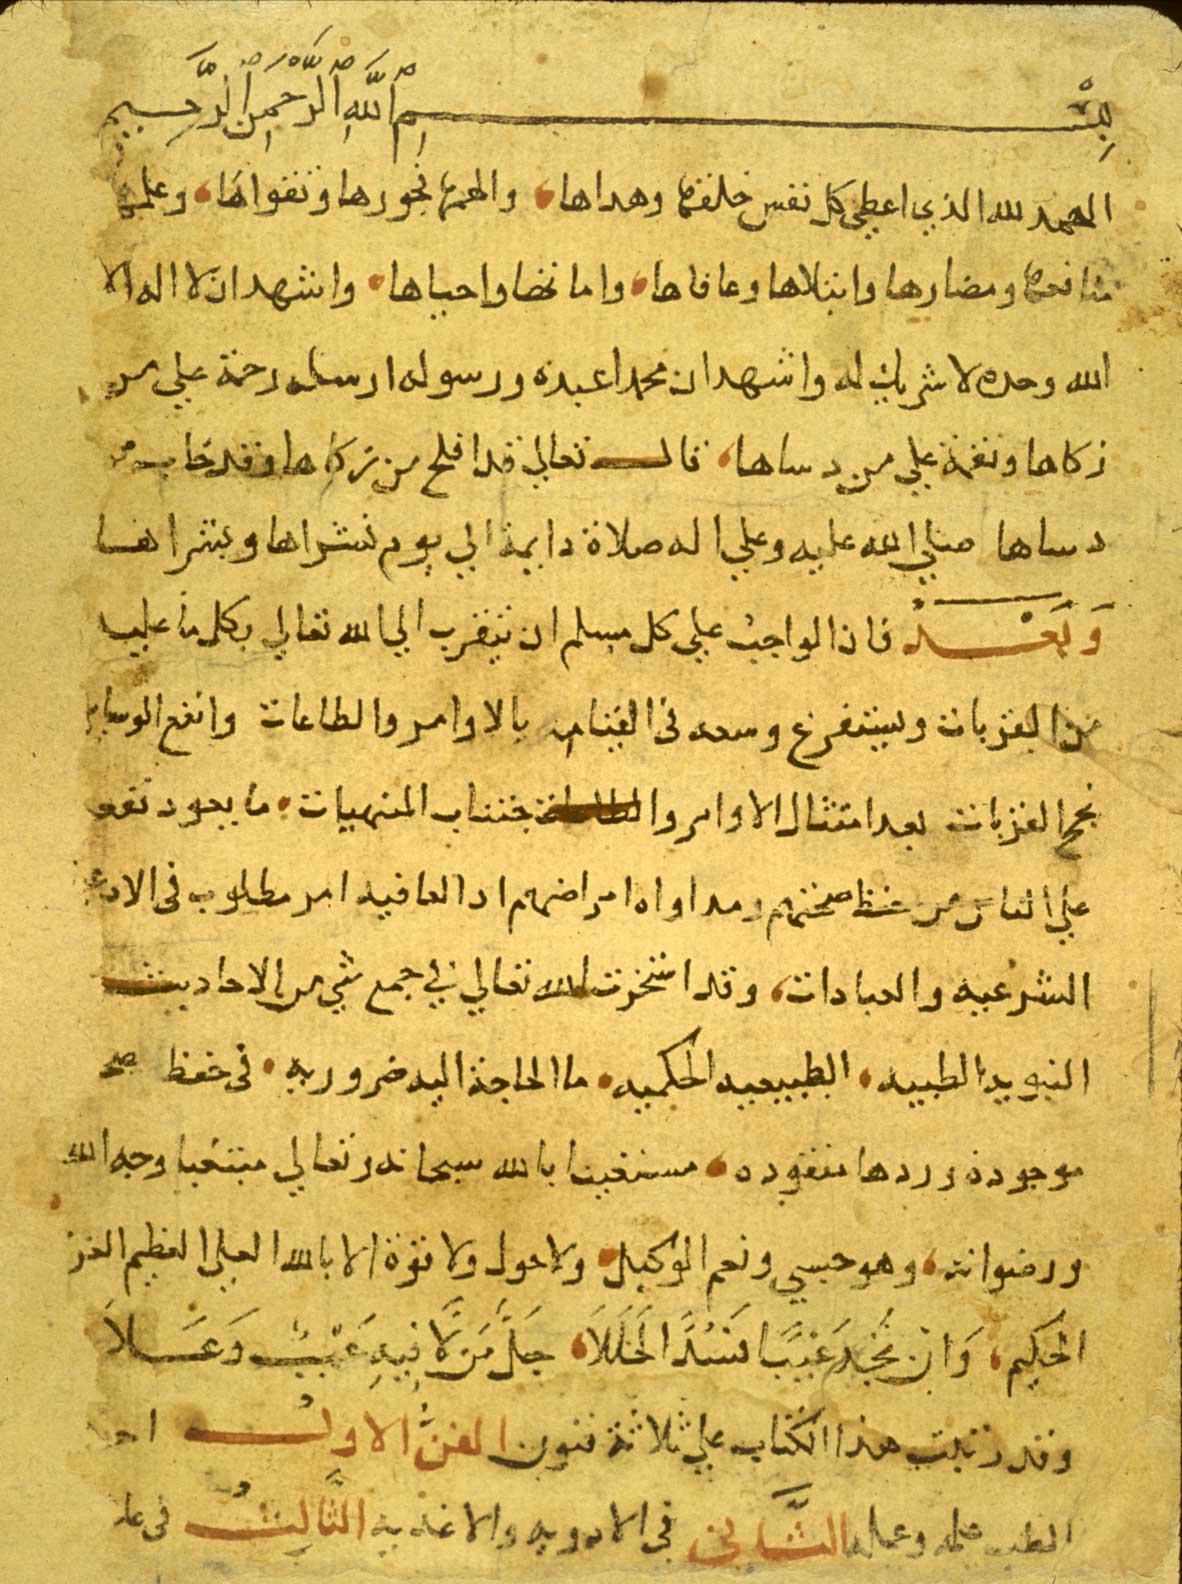 بِسْم اللَّهِ الرَّحْمَنِ الرَّحِيم
الحمد لله الذي اعطي كل نفس خلقها وهداها، والهمها فجورها وتقواها، وعلمها
منافعها ومضارها وابتلاها وعافاها، واماتها واحياها، واشهد ان لا اله الا
الله وحده لا شريك له واشهد ان محمدا عبده ورسوله ارسله رحمة علي من
زكاها ونقمة علي من دساها، قال تعالي قد افلح من زكاها وقد خاب من
دساها صلي الله عليه وعلي اله صلاة دايمة الي يوم
وَبَعْد فان الواجب علي كل مسلم ان يتقرب الي الله تعالي بكل ما عليه
من القربات ويستفرغ وسعه في القيام بالاوامر والطاعات وانفع الوسايل
نجح القربات بعد امتثال الاوامر وا جتناب المنهيات، ما يعود نفعه
علي الناس من حفظ صحتهم ومداواه امراضهم اذ العافيه امر مطلوب في الادعية
الشرعيه والعبادات، وقد استخرت الله تعالي في جمع شي من الاحاديث
النبويه الطبيه، الطبيعيه الحكميه، ما الحاجة اليه ضروريه، في حفظ صحه
موجوده وردها مفقوده، مستعينا بالله سبحانه وتعالي مبتغيا وجه الله
ورضوانه، وهو حسبي ونعم الوكيل، ولا حول ولا قوة الا بالله العلي العظيم العزيز
الحكيم، وَانْ تَجِدْ عَيْبًا فَسُدَّ الخَلَلاَ، جَلَّ مَنْ لاَ فِيهِ عَيْبٌ وَعَلاَ
وقد رتبت هذا الكتاب علي ثلاثة فنون الفنُّ الاول
الطب علمه وعمله الثَّاني في الادويه والاغذيه الثَّالِثُ في علاج